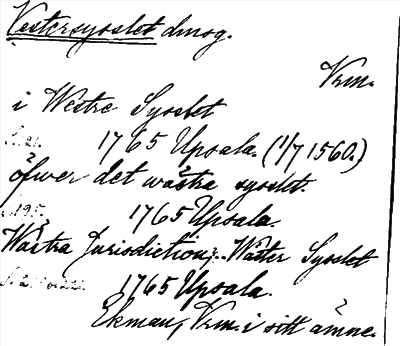 Vestersysslet dmog.
Vrm.
i Westre Sysslet
S. 21. 1765 Upsala. (1/7 1560.)
öfwer det wästra sysslet.
s. 195. 1765 Upsala.
Wästra Jurisdiction, Wäster Sysslet
1765 Upsala.
Ekman, Vrm. i sitt ämne.